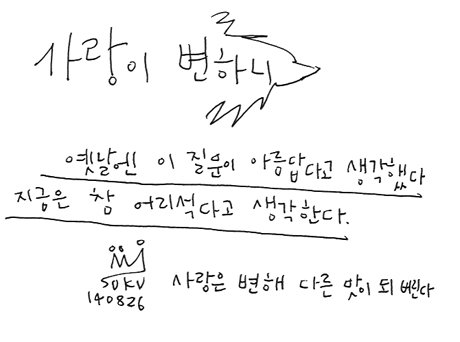 사랑이 변하니
옛날엔 이 질문이 아름답다고 생각했다
지금은 참 어리석다고 생각한다.
사랑은 변해 다른 맛이 되 버린다
SOKU
140826